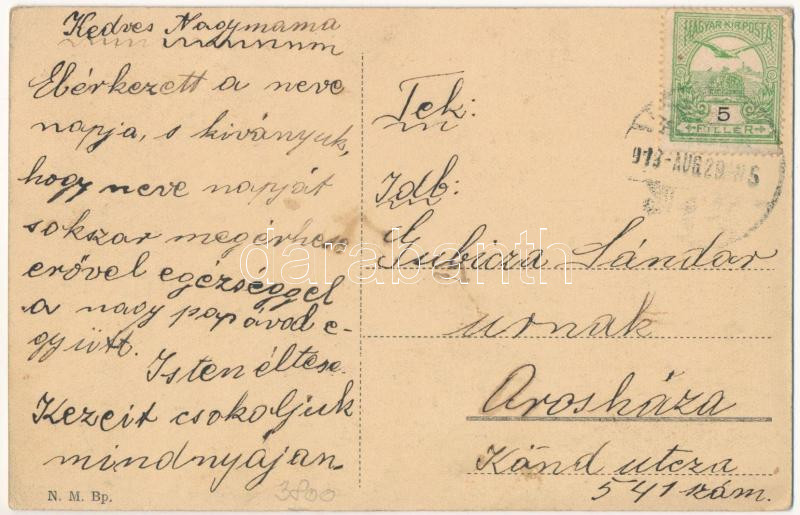 Kedves Nagymama
Elérkezett a neve
napja, s kiványuk,
hogy neve napját
sokszar megérhese
erővel egézséggel
a nagy papával e-
gyütt.
Isten éltese.
Kezeit csokoljuk
mindnyáján.
N. M. Bp.
3800
MAGYAR KIR. POSTA
5
FILLÉR
913-AUG.29
Tek:
Idb:
Gubicza Sándar
urnak
Orosháza
Kánd utcza
541 szám.
darabanth